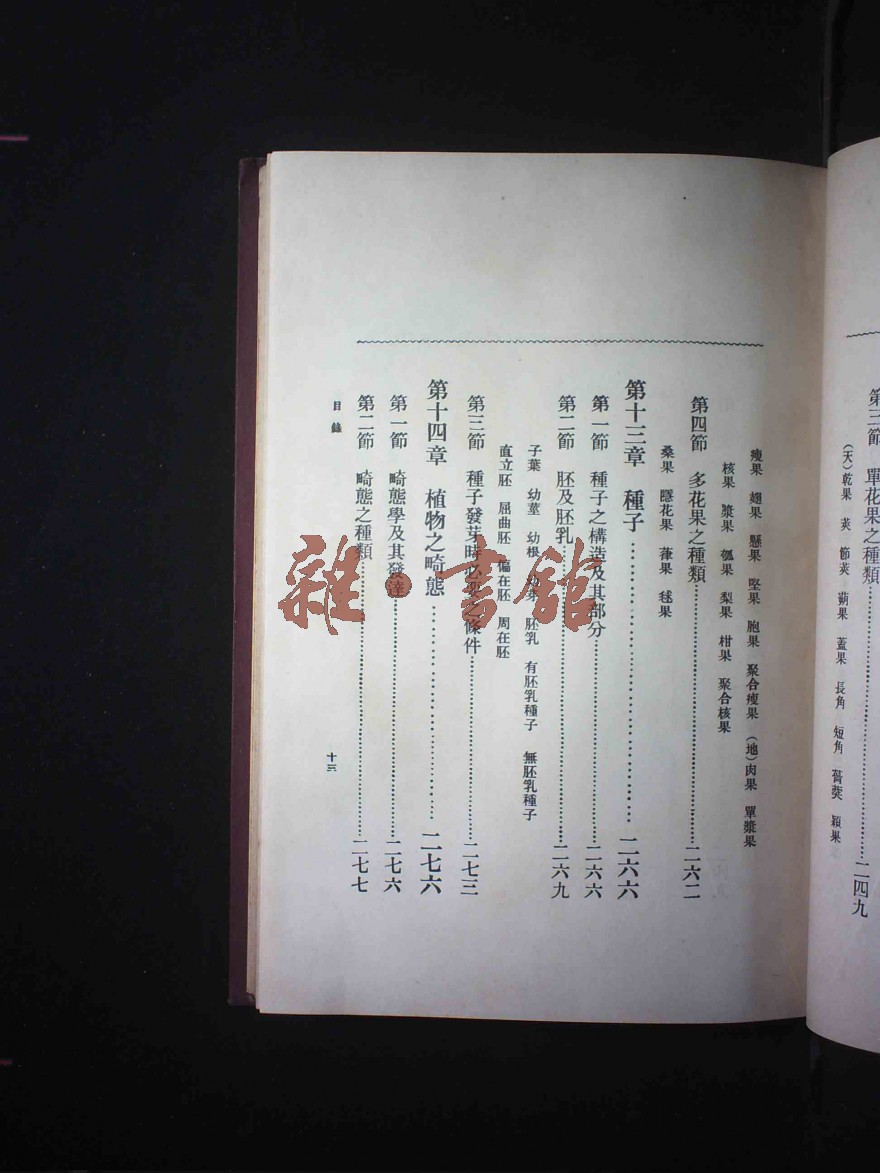 第三節 單花果之種類……二四九
(天)乾果 莢 節莢 蒴果 蓋果 長角 短角 穎果
瘦果 翅果 懸果 堅果 胞果 聚合瘦果 (地)肉果 單漿果
核果 漿果 瓠果 梨果 柑果 聚合核果
第四節 多花果之種類……二六二
桑果 隱花果 毬果
第十三章 種子……二六六
第一節 種子之構造及其部分……二六六
第二節 胚及胚乳……二六九
子葉 幼莖 幼根 幼芽 胚乳 有胚乳種子 無胚乳種子
直立胚 屈曲胚 偏在胚 周在胚
第三節 種子發芽時必要之條件……二七三
第十四章 植物之畸態……二七六
第一節 畸態學及其發達……二七六
第二節 畸態之種類……二七七
目錄
十三
雜·書館